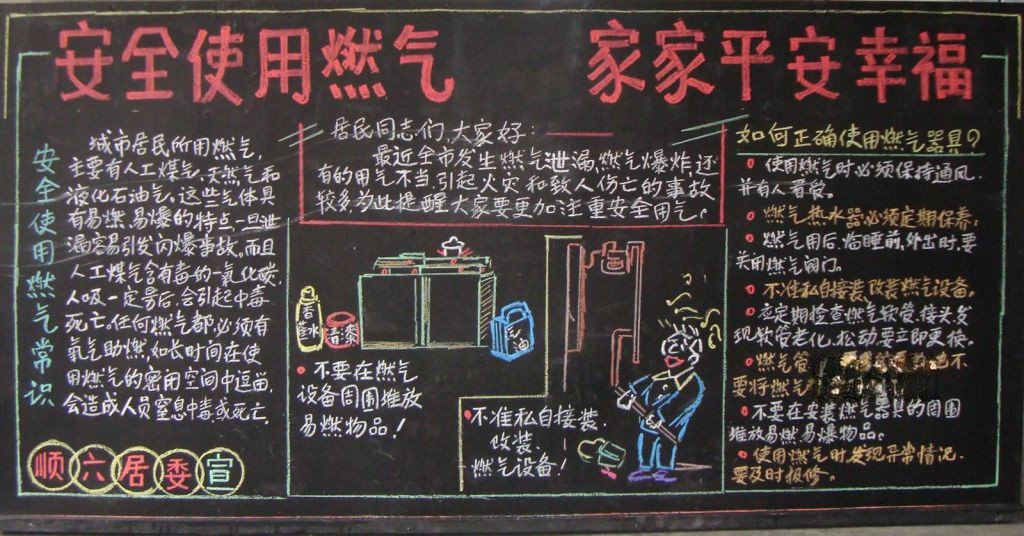 安全使用燃气 家家平安幸福
安全使用燃气常识
城市居民所用燃气,
主要有人工煤气,天然气和
液化石油气。这些气体具
有易燃、易爆的特点,一旦泄
漏容易引发闪爆事故。而且
人工煤气含有毒的一氧化碳,
人吸一定号后,会引起中毒
死亡。任何燃气都必须有
氧气助燃,如长时间在使
用燃气的密用空间中逗留,
会造成人员窒息中毒或死亡.
顺六居委宣
居民同志们,大家好:
最近全市发生燃气泄漏,燃气爆炸还
有的用气不当,引起火灾和致人伤亡的事故
较多,为此提醒大家要更加注重安全用气。
香蕉水
青漆
油
不要在燃气
设备周围堆放
易燃物品!
不准私自接装.
改装.
燃气设备!
如何正确使用燃气器具?
使用燃气时必须保持通风.
并有人看管.
燃气热水器必须定期保养;
燃气用后,临睡前,外出时,要
关闭燃气阀门。
不准私自接装,改装燃气设备.
应定期检查燃气软管、接头,发
现软管老化,松动要立即更换.
燃气管
不
要将燃气
不要在安装燃气器具的周围
堆放易燃易爆物品;
使用燃气时发现异常情况.
要及时报修。